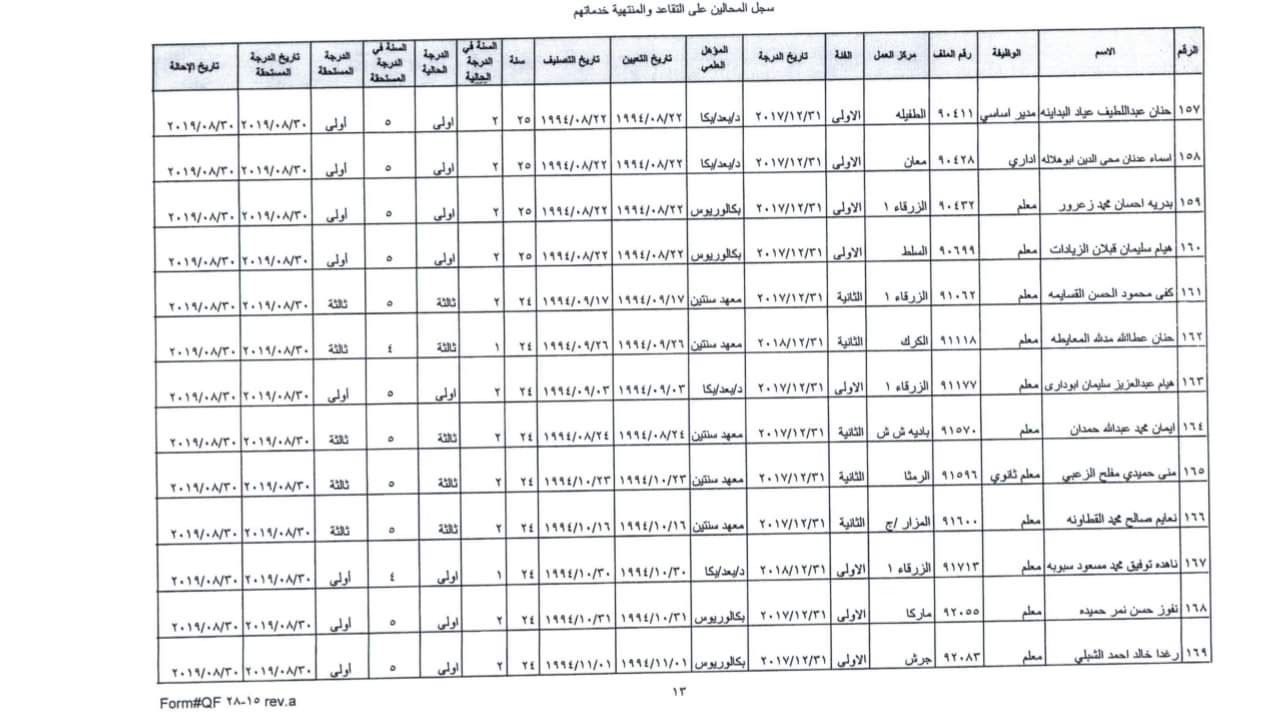 سجل المحالين على التقاعد والمنتهية خدماتهم
الرقم الاسم الوظيفة رقم الملف مركز العمل الفئة تاريخ الدرجة المؤهل العلمي تاريخ التعيين تاريخ التصنيف سنة السنة في الدرجة الحالية الدرجة الحالية السنة في الدرجة مستحقة الدرجة المستحقة تاريخ الدرجة المستحقة تاريخ الإحالة
١٥٧ حنان عبداللطيف عياد البداينه مدير اساسي ٩٠٤١١ الطفيله الاولى ٢٠١٧/١٢/٣١ د/بعد/بكا ١٩٩٤/٠٨/٢٢ ١٩٩٤/٠٨/٢٢ ٢٥ ٢ اولى ٥ أولى ٢٠١٩/٠٨/٣٠ ٢٠١٩/٠٨/٣٠
١٥٨ اسماء عدنان محي الدين ابوهلاله اداري ٩٠٤٢٨ معان الاولى ٢٠١٧/١٢/٣١ د/بعد/بكا ١٩٩٤/٠٨/٢٢ ١٩٩٤/٠٨/٢٢ ٢٥ ٢ اولى ٥ أولى ٢٠١٩/٠٨/٣٠ ٢٠١٩/٠٨/٣٠
١٥٩ بدريه احسان محمد زعرور معلم ٩٠٤٣٢ الزرقاء ١ الاولى ٢٠١٧/١٢/٣١ بكالوريوس ١٩٩٤/٠٨/٢٢ ١٩٩٤/٠٨/٢٢ ٢٥ ٢ اولى ٥ أولى ٢٠١٩/٠٨/٣٠ ٢٠١٩/٠٨/٣٠
١٦٠ هيام سليمان قبلان الزيادات معلم ٩٠٦٩٩ السلط الاولى ٢٠١٧/١٢/٣١ بكالوريوس ١٩٩٤/٠٨/٢٢ ١٩٩٤/٠٨/٢٢ ٢٥ ٢ اولى ٥ أولى ٢٠١٩/٠٨/٣٠ ٢٠١٩/٠٨/٣٠
١٦١ كفى محمود الحسن القسايمه معلم ٩١٠٦٢ الزرقاء ١ الثانية ٢٠١٧/١٢/٣١ معهد سنتين ١٩٩٤/٠٩/١٧ ١٩٩٤/٠٩/١٧ ٢٤ ٢ ثالثة ٥ ثالثة ٢٠١٩/٠٨/٣٠ ٢٠١٩/٠٨/٣٠
١٦٢ حنان عطاالله مدالله المعايطه معلم ٩١١١٨ الكرك الثانية ٢٠١٨/١٢/٣١ معهد سنتين ١٩٩٤/٠٩/٢٦ ١٩٩٤/٠٩/٢٦ ٢٤ ١ ثالثة ٤ ثالثة ٢٠١٩/٠٨/٣٠ ٢٠١٩/٠٨/٣٠
١٦٣ هيام عبدالعزيز سليمان ابودارى معلم ٩١١٧٧ الزرقاء ١ الاولى ٢٠١٧/١٢/٣١ د/بعد/بكا ١٩٩٤/٠٩/٠٣ ١٩٩٤/٠٩/٠٣ ٢٤ ٢ اولى ٥ أولى ٢٠١٩/٠٨/٣٠ ٢٠١٩/٠٨/٣٠
١٦٤ ايمان محمد عبدالله حمدان معلم ٩١٥٧٠ باديه ش ش الثانية ٢٠١٧/١٢/٣١ معهد سنتين ١٩٩٤/٠٨/٢٤ ١٩٩٤/٠٨/٢٤ ٢٤ ٢ ثالثة ٥ ثالثة ٢٠١٩/٠٨/٣٠ ٢٠١٩/٠٨/٣٠
١٦٥ منى حميدي مفلح الزعبي معلم ثانوي ٩١٥٩٦ الرمثا الثانية ٢٠١٧/١٢/٣١ معهد سنتين ١٩٩٤/١٠/٢٣ ١٩٩٤/١٠/٢٣ ٢٤ ٢ ثالثة ٥ ثالثة ٢٠١٩/٠٨/٣٠ ٢٠١٩/٠٨/٣٠
١٦٦ نعايم صالح محمد القطاونه معلم ٩١٦٠٠ المزار /ج الثانية ٢٠١٧/١٢/٣١ معهد سنتين ١٩٩٤/١٠/١٦ ١٩٩٤/١٠/١٦ ٢٤ ٢ ثالثة ٥ ثالثة ٢٠١٩/٠٨/٣٠ ٢٠١٩/٠٨/٣٠
١٦٧ ناهده توفيق محمد مسعود سبوبه معلم ٩١٧١٣ الزرقاء ١ الاولى ٢٠١٨/١٢/٣١ د/بعد/بكا ١٩٩٤/١٠/٣٠ ١٩٩٤/١٠/٣٠ ٢٤ ١ اولى ٤ أولى ٢٠١٩/٠٨/٣٠ ٢٠١٩/٠٨/٣٠
١٦٨ نفوز حسن نمر حميده معلم ٩٢٠٥٥ ماركا الاولى ٢٠١٧/١٢/٣١ بكالوريوس ١٩٩٤/١٠/٣١ ١٩٩٤/١٠/٣١ ٢٤ ٢ اولى ٥ أولى ٢٠١٩/٠٨/٣٠ ٢٠١٩/٠٨/٣٠
١٦٩ رغدا خالد احمد الشبلي معلم ٩٢٠٨٣ جرش الاولى ٢٠١٧/١٢/٣١ بكالوريوس ١٩٩٤/١١/٠١ ١٩٩٤/١١/٠١ ٢٤ ٢ اولى ٥ أولى ٢٠١٩/٠٨/٣٠ ٢٠١٩/٠٨/٣٠
١٣
Form#QF ٢٨-١٥ rev.a